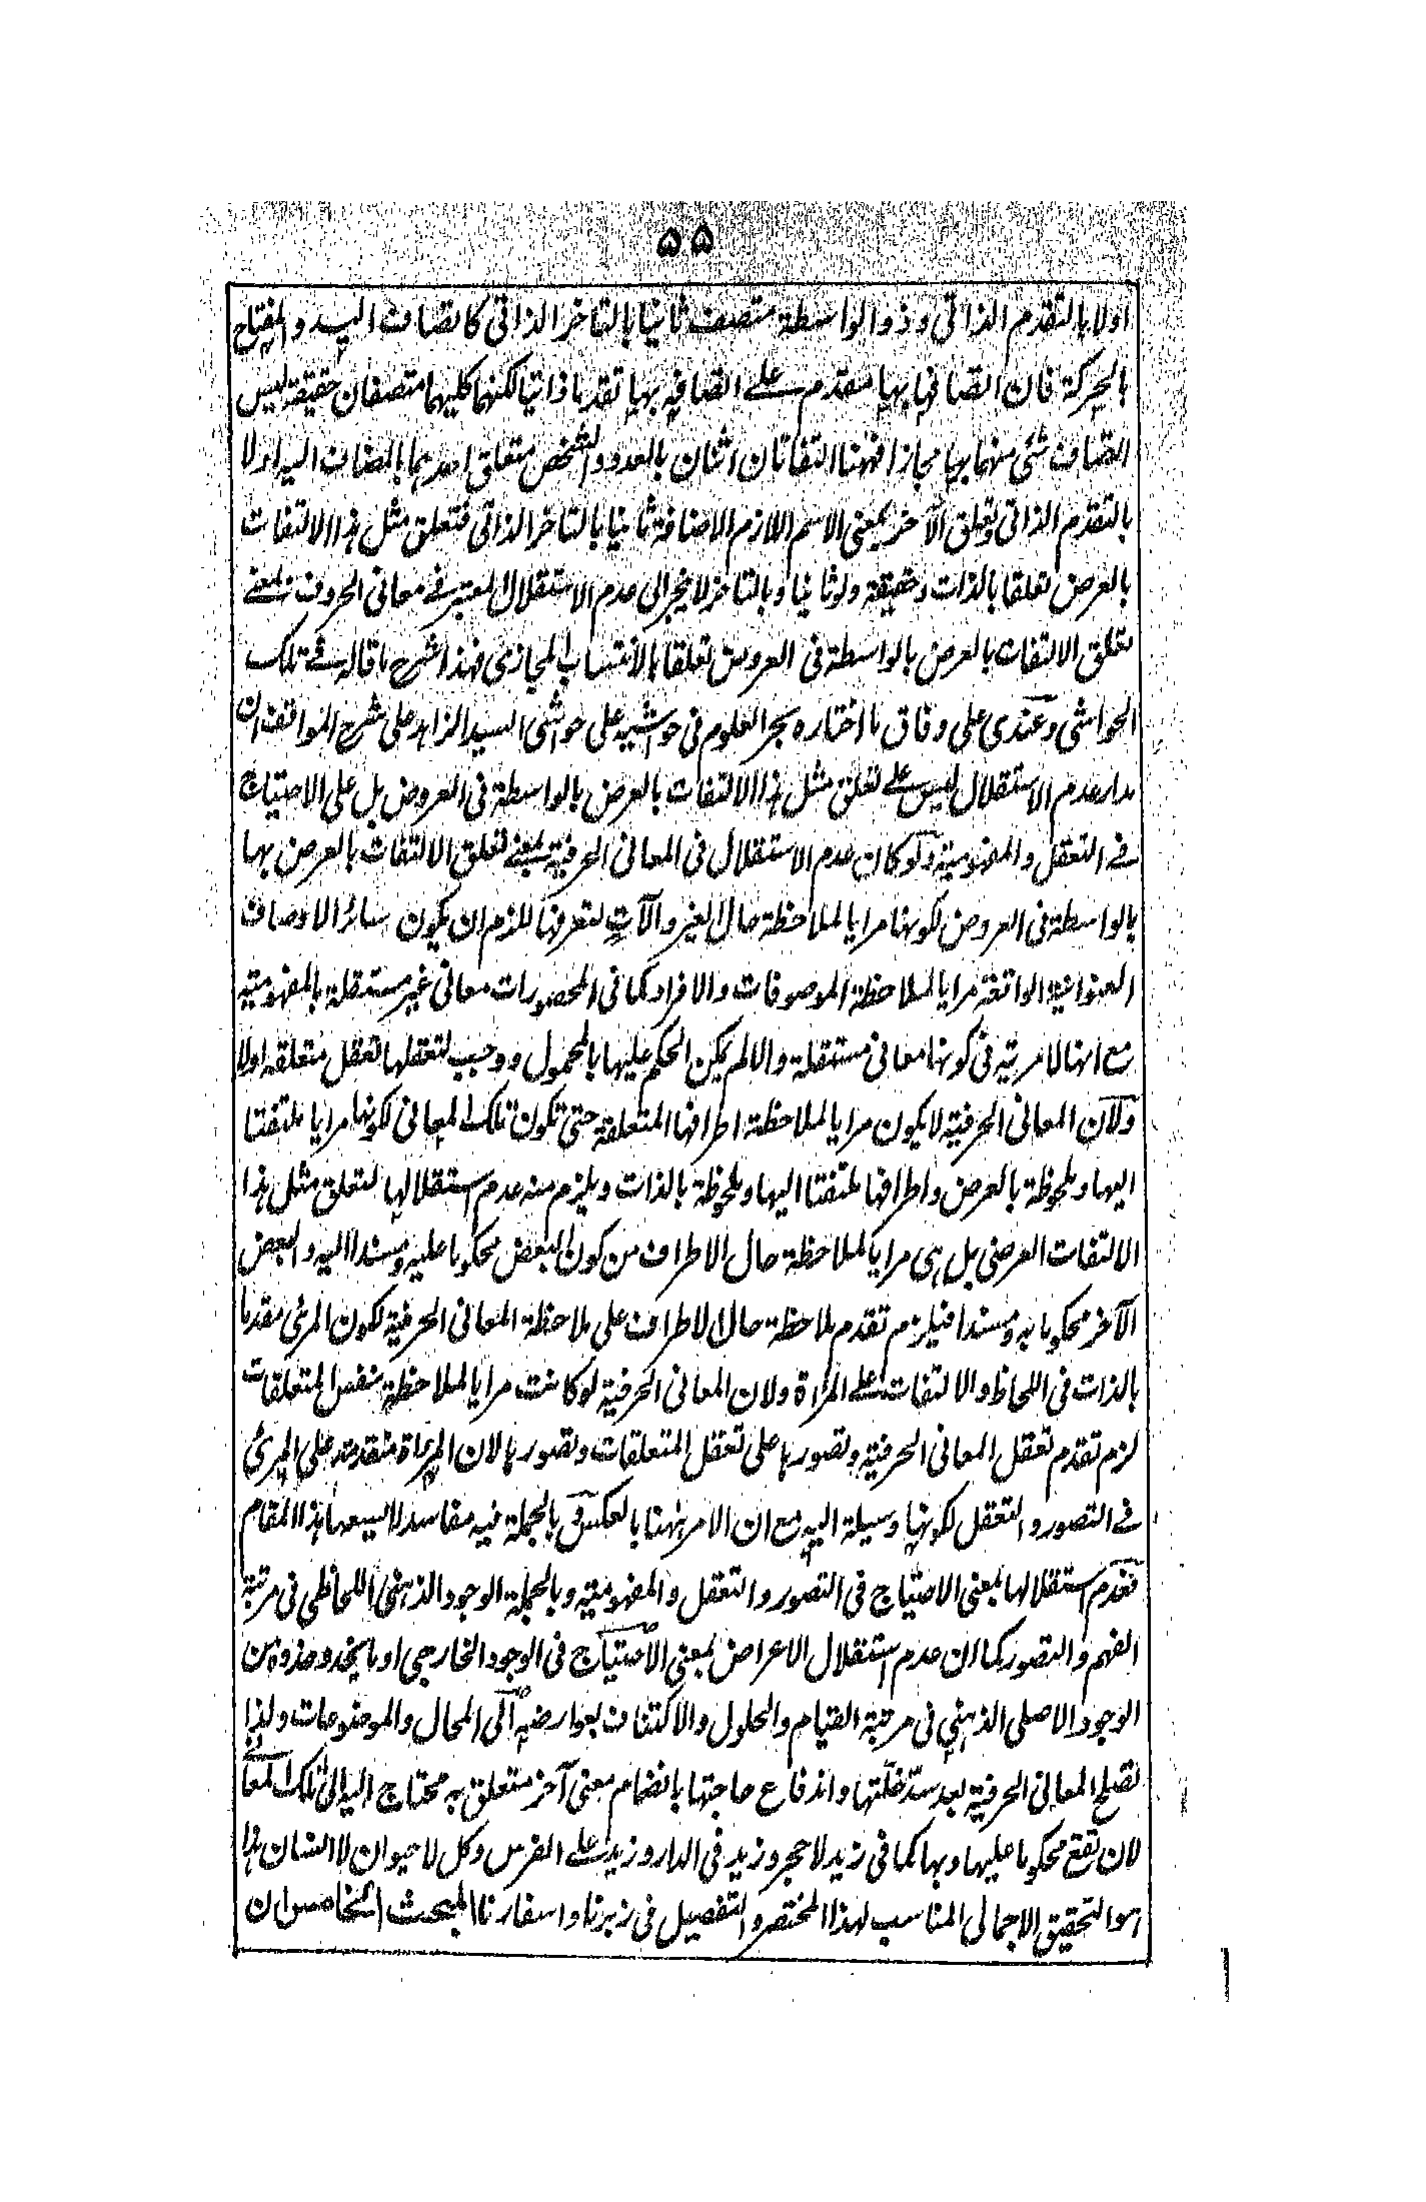 ۵۵
اولا بالتقدم الذاتی و ذو الواسطة متصف ثانیا بالتاخر الذاتی کاتصاف الید و المفتاح
بالحرکة فان اتصافها بها مقدم علے اتصافه بها تقدما ذاتیا لکنهما کلیهما متصفان حقیقة لیس
اتصاف شئ منهما بها مجازا فههنا التفاتان اثنان بالعدد و الشخص متعلق احدهما بالمضاف الیه اولا
بالتقدم الذاتی و تعلق الآخر بمعنی الاسم اللازم الاضافة ثانیا بالتاخر الذاتی فتعلق مثل هذا الالتفات
بالعرض تعلقا بالذات و حقیقة ولو ثانیا و بالتاخر لا ینجر الی عدم الاستقلال المعتبر فے معانی الحروف نعنے
تعلق الالتفات بالعرض بالواسطة فی العروض تعلقا بالانتساب المجازی فهذا شرح ما قاله فے تلک
الحواشی و عندی علی وفاق ما اختاره بحر العلوم فی حواشیه علی حواشی السید الزاهد علی شرح المواقف ان
مدار عدم الاستقلال لیس علے تعلق مثل هذا الالتفات بالعرض بالواسطة فی العروض بل علی الاحتیاج
فے التعقل و المفهومیة ولو کان عدم الاستقلال فی المعانی الحرفیة بمعنے تعلق الالتفات بالعرض بها
بالواسطة فی العروض لکونها مرایا لملاحظة حال الغیر و آلات لتعرفها للزم ان یکون سائر الاوصاف
العنوانیة الواقعة مرایا لملاحظة الموصوفات و الافراد کما فی المحصورات معانی غیر مستقلة بالمفهومیة
مع انها لا مریة فی کونها معانی مستقلة و الا لم یمکن الحکم علیها بالمحمول و وجب لتعقلها تعقل متعلقه اولا
ولان المعانی الحرفیة لا یکون مرایا لملاحظة اطرافها المتعلقة حتی تکون تلک المعانی لکونها مرایا ملتفتا
الیها و ملحوظة بالعرض و اطرافها ملتفتا الیها و ملحوظة بالذات و یلزم منه عدم استقلالها لتعلق مثل هذا
الالتفات العرضی بل هی مرایا لملاحظة حال الاطراف من کون البعض محکوما علیه و مسندا الیه و البعض
الآخر محکوما به و مسندا فیلزم تقدم ملاحظة حال الاطراف علی ملاحظة المعانی الحرفیة لکون المرئی مقدما
بالذات فی اللحاظ و الالتفات علے المرآة ولان المعانی الحرفیة لو کانت مرایا لملاحظة نفس المتعلقات
لزم تقدم تعقل المعانی الحرفیة و تصورها علی تعقل المتعلقات و تصورها لان المرآة متقدمة علی المرئی
فے التصور و التعقل لکونها وسیلة الیه مع ان الامر ههنا بالعکس و بالجملة فیه مفاسد لا یسعها هذا المقام
فعدم استقلالها بمعنی الاحتیاج فی التصور و التعقل و المفهومیة و بالجملة الوجود الذهنی اللحاظی فی مرتبة
الفهم و التصور کما ان عدم استقلال الاعراض بمعنی الاحتیاج فی الوجود الخارجی او ما یحذو حذوه من
الوجود الاصلی الذهنی فی مرتبة القیام و الحلول و الاکتناف بعوارضه الی المحال و الموضوعات ولذا
تصلح المعانی الحرفیة بعد سد خلتها و اندفاع حاجتها بانضمام معنی آخر متعلق به محتاج الیه الی تلک المعانی
لان تقع محکوما علیها و بها کما فی زید لا حجر و زید فی الدار و زید علے الفرس و کل لا حیوان لا انسان هذا
هو التحقیق الاجمالی المناسب لهذا المختصر و التفصیل فی زبرنا و اسفارنا المبحث الخامس ان